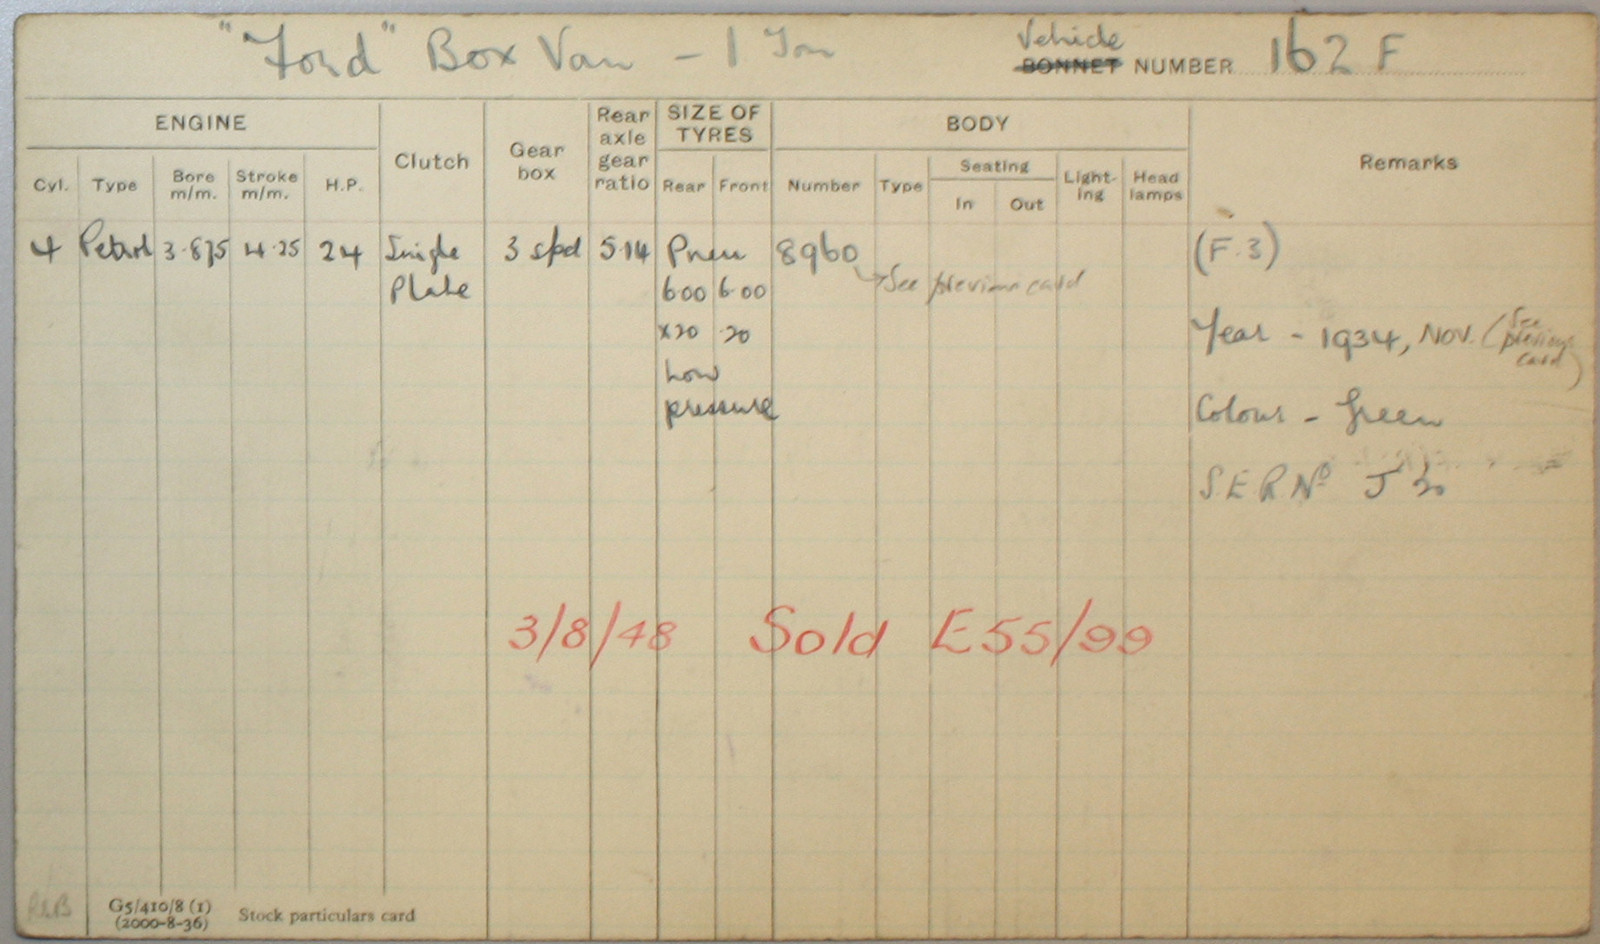 "Ford" Box Van - 1 Ton
Vehicle
BONNET NUMBER 162 F
ENGINE
Clutch
Gear box
Rear axle gear ratio
SIZE OF TYRES
BODY
Remarks
Cyl. Type Bore m/m. Stroke m/m. H.P.
Rear Front
Number Type Seating Light-ing Head lamps
In Out
4 Petrol 3.875 4.25 24 Single 3 spd 5.14 Pneu 8960 (F.3)
Plate 6.00 6.00 See previous card
x20 .20 Year - 1934, NOV. (See previous card)
Low
pressure Colour - Green
S.E.R. No J 20
3/8/48 Sold E55/99
G5/410/8 (1)
(2000-8-36) Stock particulars card